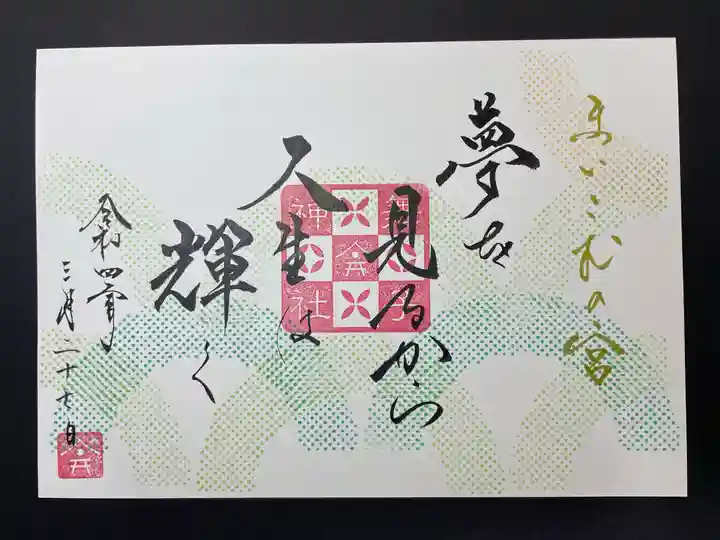 まいこむの宮
夢を
見るから
人生は
輝く
令和四年
三月二十七日
舞子
六
神社